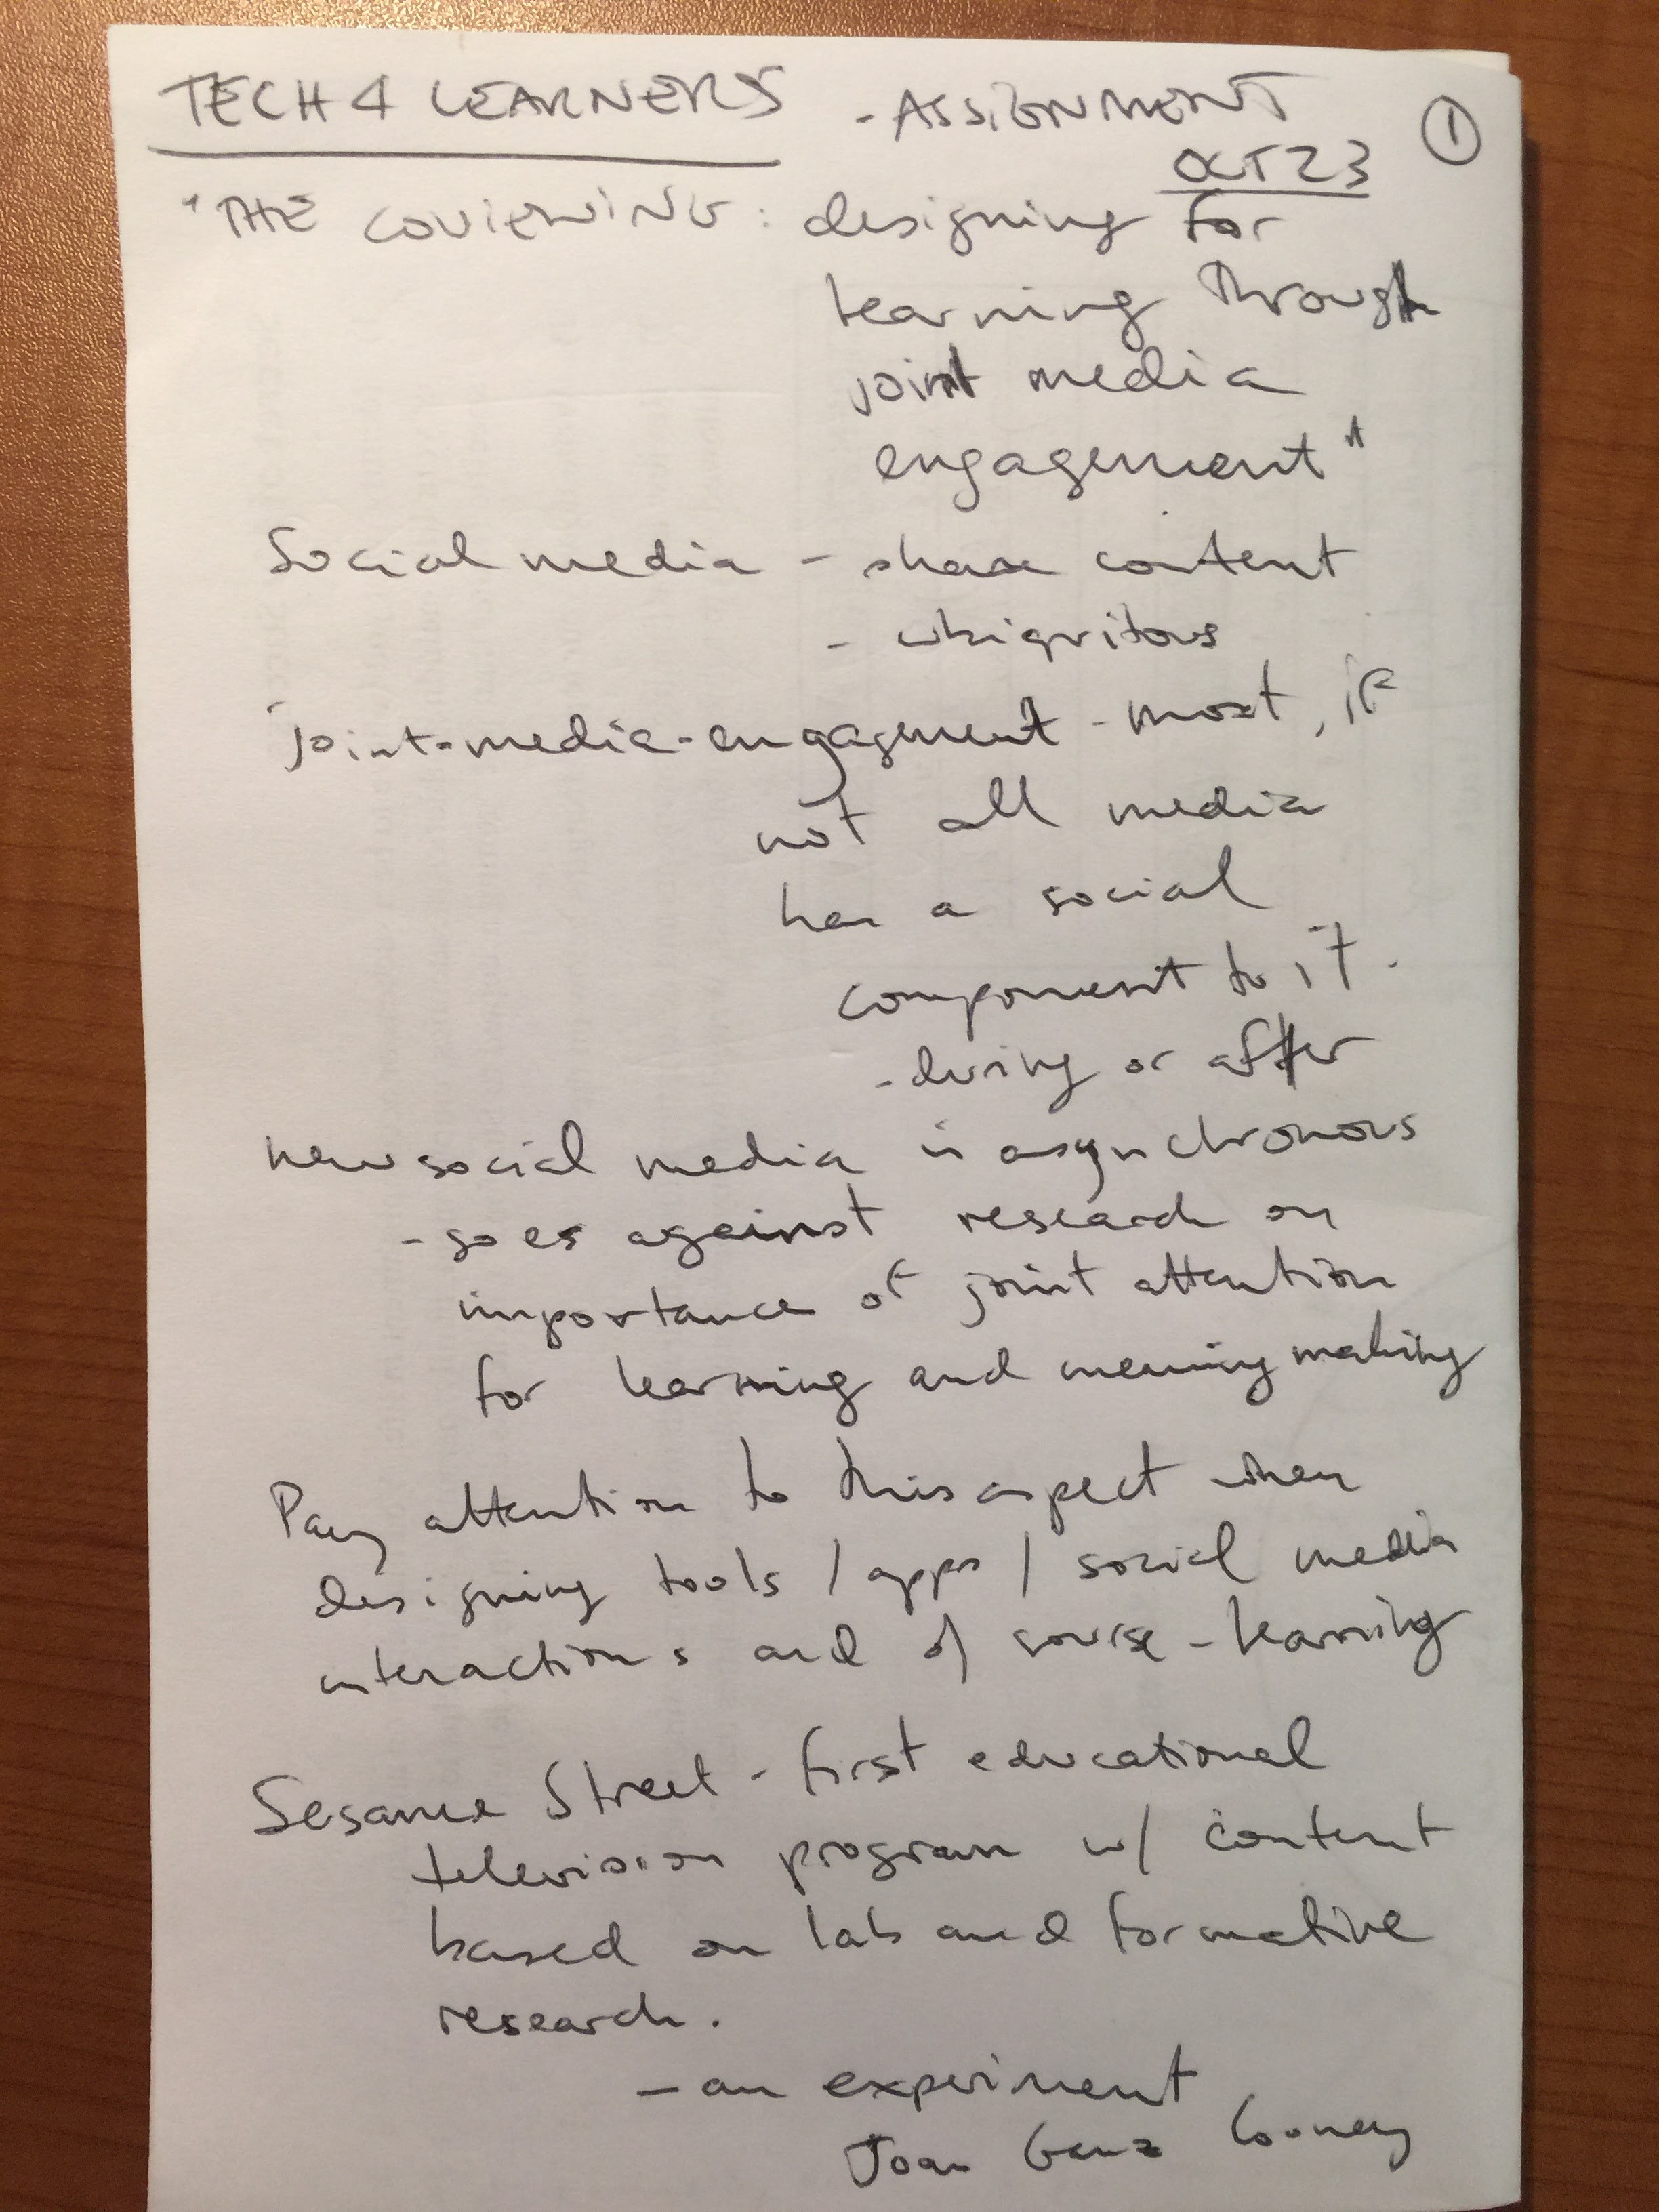 TECH 4 LEARNERS - ASSIGNMENT ①
OCT 23
"THE COVIEWING: designing for
learning through
joint media
engagement"
Social media - share content
- ubiquitous
joint-media-engagement - most, if
not all media
has a social
component to it.
- during or after
new social media is asynchronous
- goes against research on
importance of joint attention
for learning and meaning making
Pay attention to this aspect when
designing tools / apps / social media
interactions and of course - learning
Sesame Street - first educational
television program w/ content
based on lab and formative
research.
- an experiment
Joan Ganz Cooney